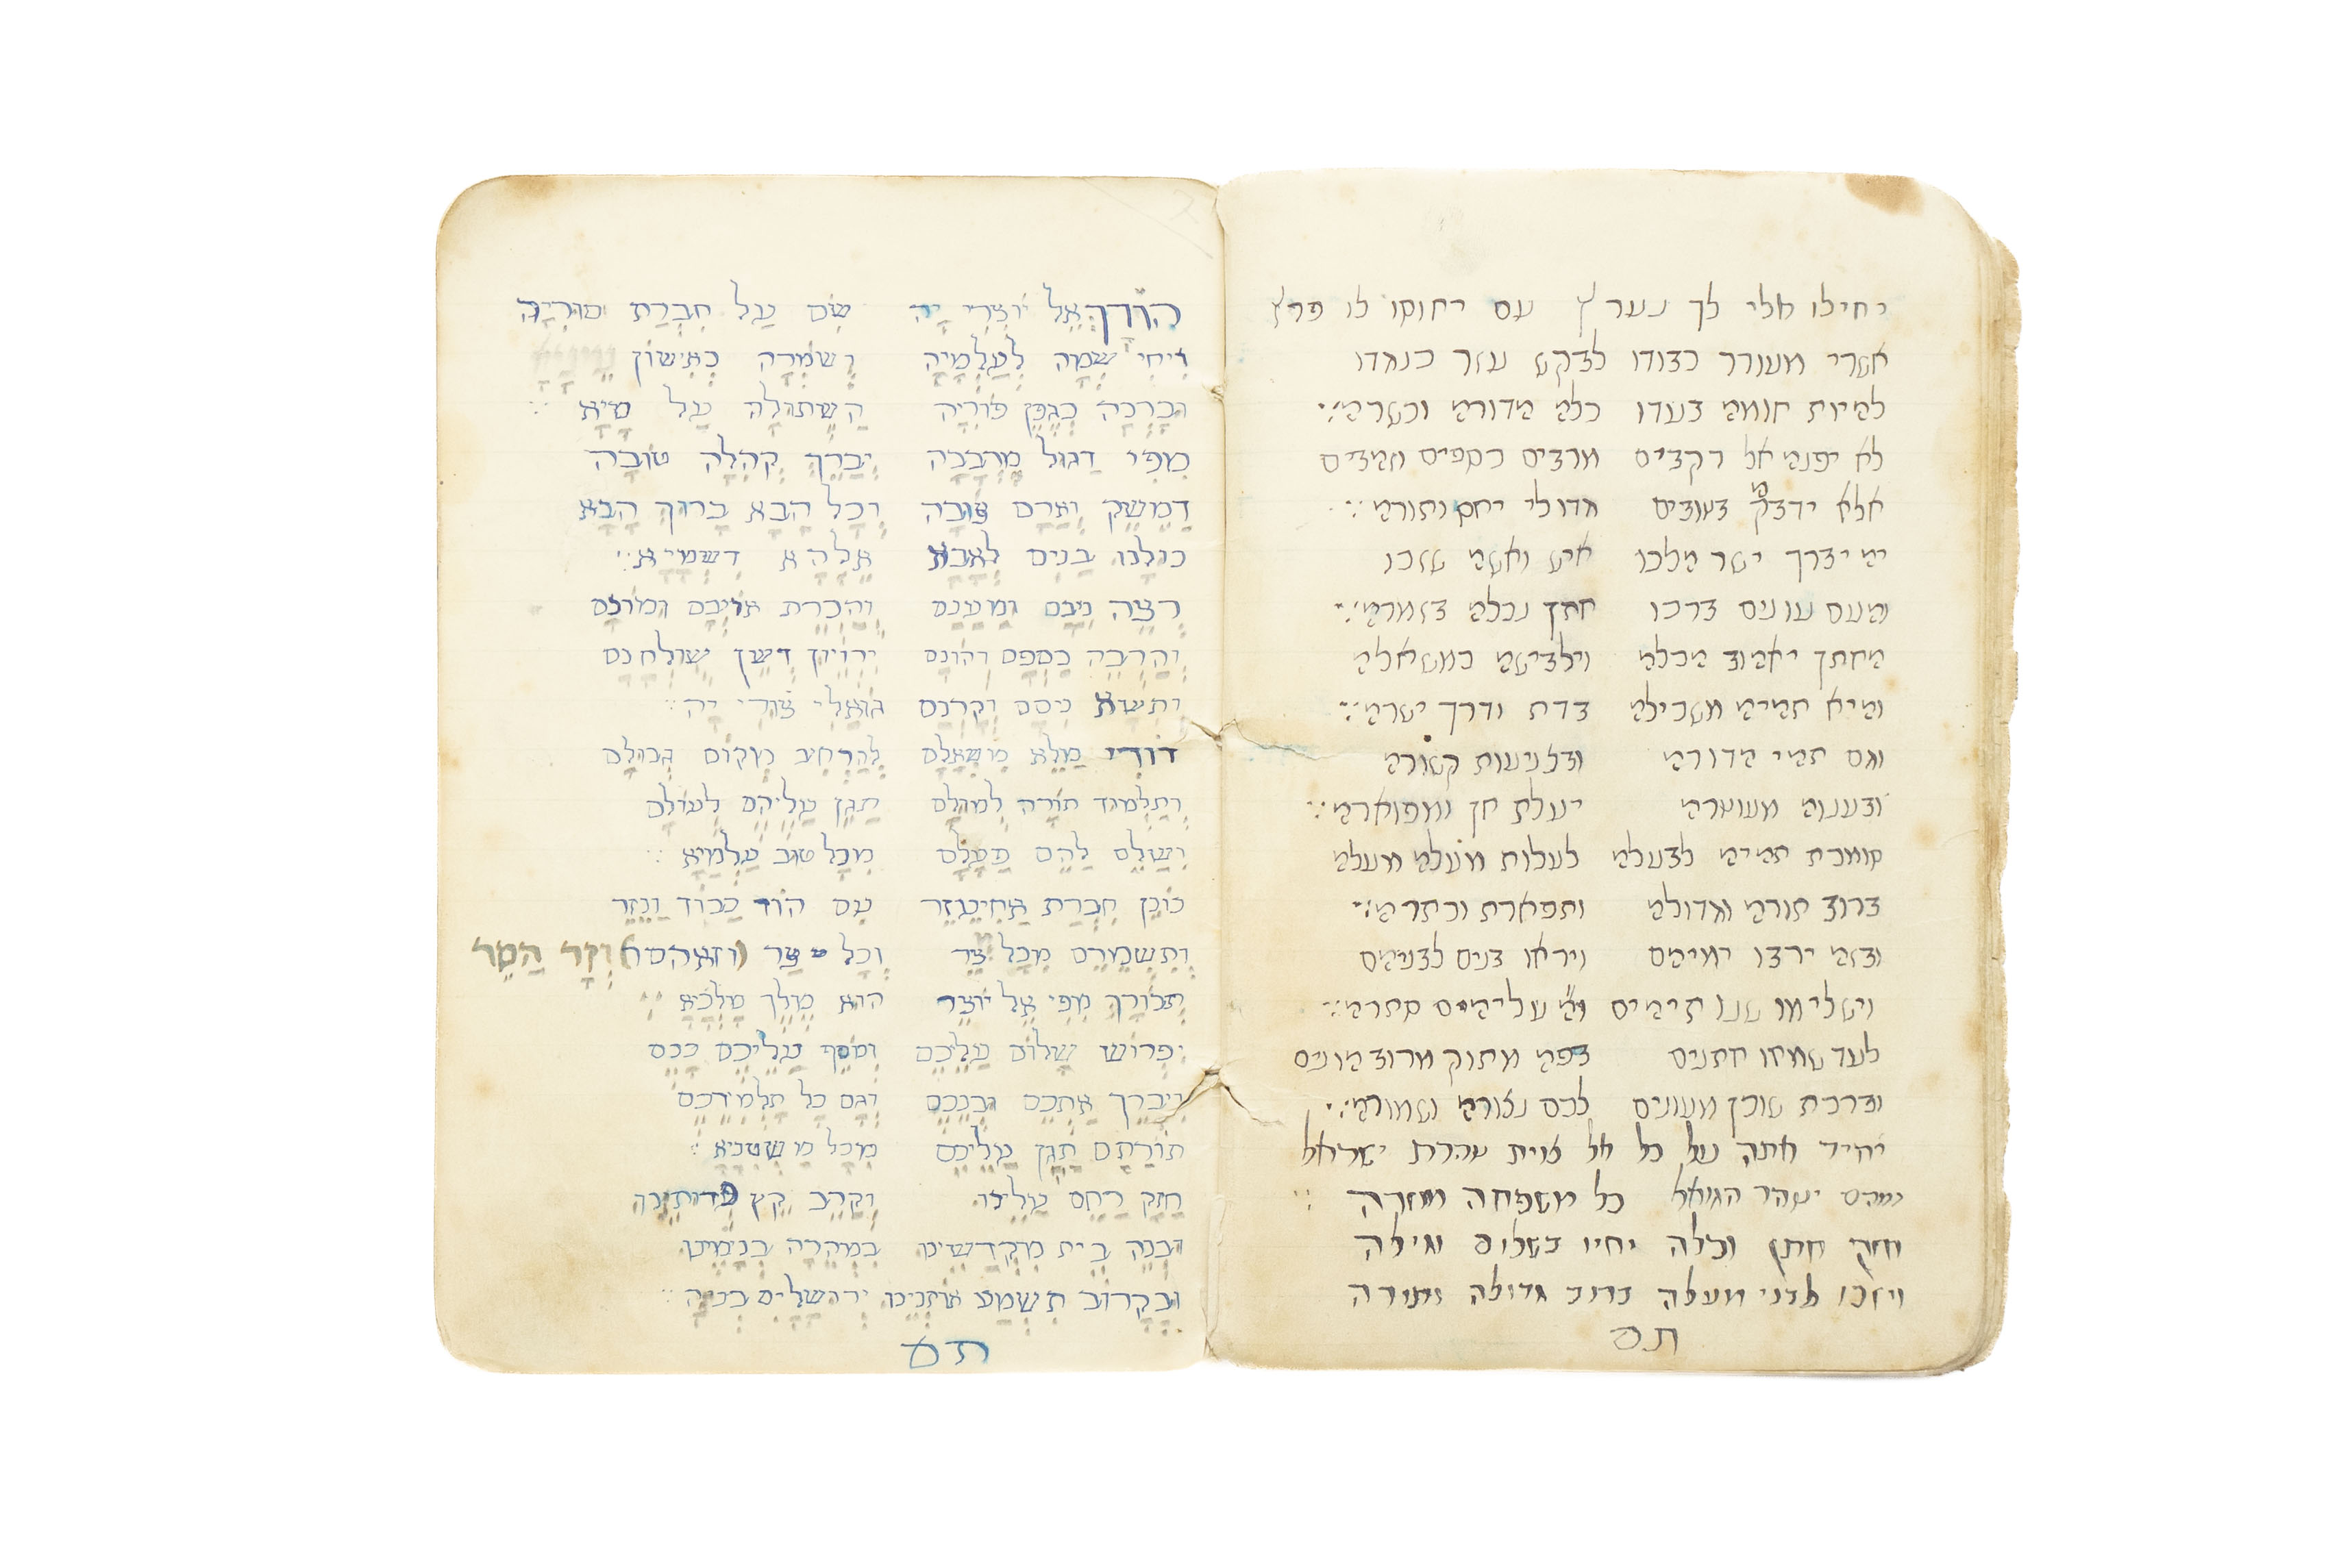 יחילו אלי לך נערץ עם יחוסו לו פרץ
אשרי מעורר בצודו לבקש עזר כנגדו
להיות חומה בעדו כלה הדורה וכשרה
לא יפנה אל רקבים מרבים כספים וזהבים
אלא ידבק בטובים גדולי יחס ותורה
יה יברך ישר הלכו איש ואשה שזכו
ומעם עונים ברכו חתן וכלה בזמרה
החתן יאהוב הכלה וילבישה כמשאלה
והיא תהיה משכילה בדת ודרך ישרה
וגם תהי הדורה ובצניעות קשורה
ובענוה מעוטרה יעלת חן ומפוארה
סומכת תהיה לבעלה לעלות מעלה מעלה
ברוב תורה וגדולה ותפארת וכתרה
ובזה ירבו ימיהם ויראו בנים לבניהם
וישלימו שנותיהם עליהם סתרה
לעד שמחו חתנים בפה מתוק מרוב המונים
וברכת שוכן מעונים לכם נצורה ושמורה
יחיד אתה על כל אל צוית עדרת ישראל
ינהר הגואל כל משפחה
חזק חתן וכלה יחיו בשלום וגילה
ויזכו לבני מעלה ברוב גדולה ותורה
תם
הוֹדְךָ אֵל יוֹצְרִי יָהּ שִׂים עַל חֶבְרַת סוּרִיָה
וִיחִי שְׁמָהּ לְעָלְמַיָה וְשׁמְרָהּ כְּאִישׁוֹן
וּבָרְכָהּ כְּגֶפֶן פּוֹרִיָה הַשְׁתוּלָה עַל מַיָא
מִפִּי דָגוּל מֵרְבָבָה יְבָרֵךְ קְהִלָה טוֹבָה
דַמֶשֶׂק וַאֲרַם צוֹבָה וְכָל הַבָא בָרוּךְ הַבָא
כּוּלָנוּ בָנִים לְאַבָא אֱלָהָא דִשְׁמַיָא
רְצֵה נִיבָם וּמַעֲנָם וְהַכְרֵת אוֹיְבָם וּמוֹנָם
וְהַרְבֵה כַסְפָם וְהוֹנָם יִרְוְיוּן דֶשֶׁן שֻׁולְחָנָם
וְתִשָׂא נִיסָם וְקַרְנָם גּוֹאֲלִי צוּרִי יָהּ
דוֹדִי מַלֵא מִשְׁאָלָם לְהַרְחִיב מְקוֹם גְבוּלָם
וְתַלְמוּד תוֹרָה לְמוּלָם תָגֵן עֲלֵיהֶם לְעוֹלָם
וְשַׁלֵם לָהֶם פָּעֳלָם מִכָל טוּב עָלְמַיָא
כּוֹנֵן חֶבְרַת אֲחִיעֶזֶר עִם הוֹד כָבוֹד וָנֵזֶר
וְתִשְׁמְרֵם מִכָל צַר וְכָל צַר וְזָר הָסֵר
תְבוֹרָךְ מִפִּי אֵל יוֹצֵר הוּא מֶלֶךְ מַלְכַיָא
יִפְרוֹשׂ שָׁלוֹם עֲלֵיכֶם וְיוֹסֵף עֲלֵיכֶם כָכֶם
וִיבָרֵךְ אֶתְכֶם וּבְנֵכֶם וְגַם כָל תַלְמִידֵכֶם
תוֹרָתָם תָגֵן עֲלֵיכֶם מִכָל מַשְׂטִנַיָא
חָזָק רַחֵם עָלֵינוּ וְקָרֵב קֵץ פְּדוּתֵנוּ
וּבְנֵה בֵית מִקְדָשֵׁינוּ בִמְהֵרָה בְיָמֵינוּ
וּבְקָרוֹב תִשְׁמַע אוֹזְנֵינוּ יְרוּשָׁלַיִם בְנוּיָה
תם